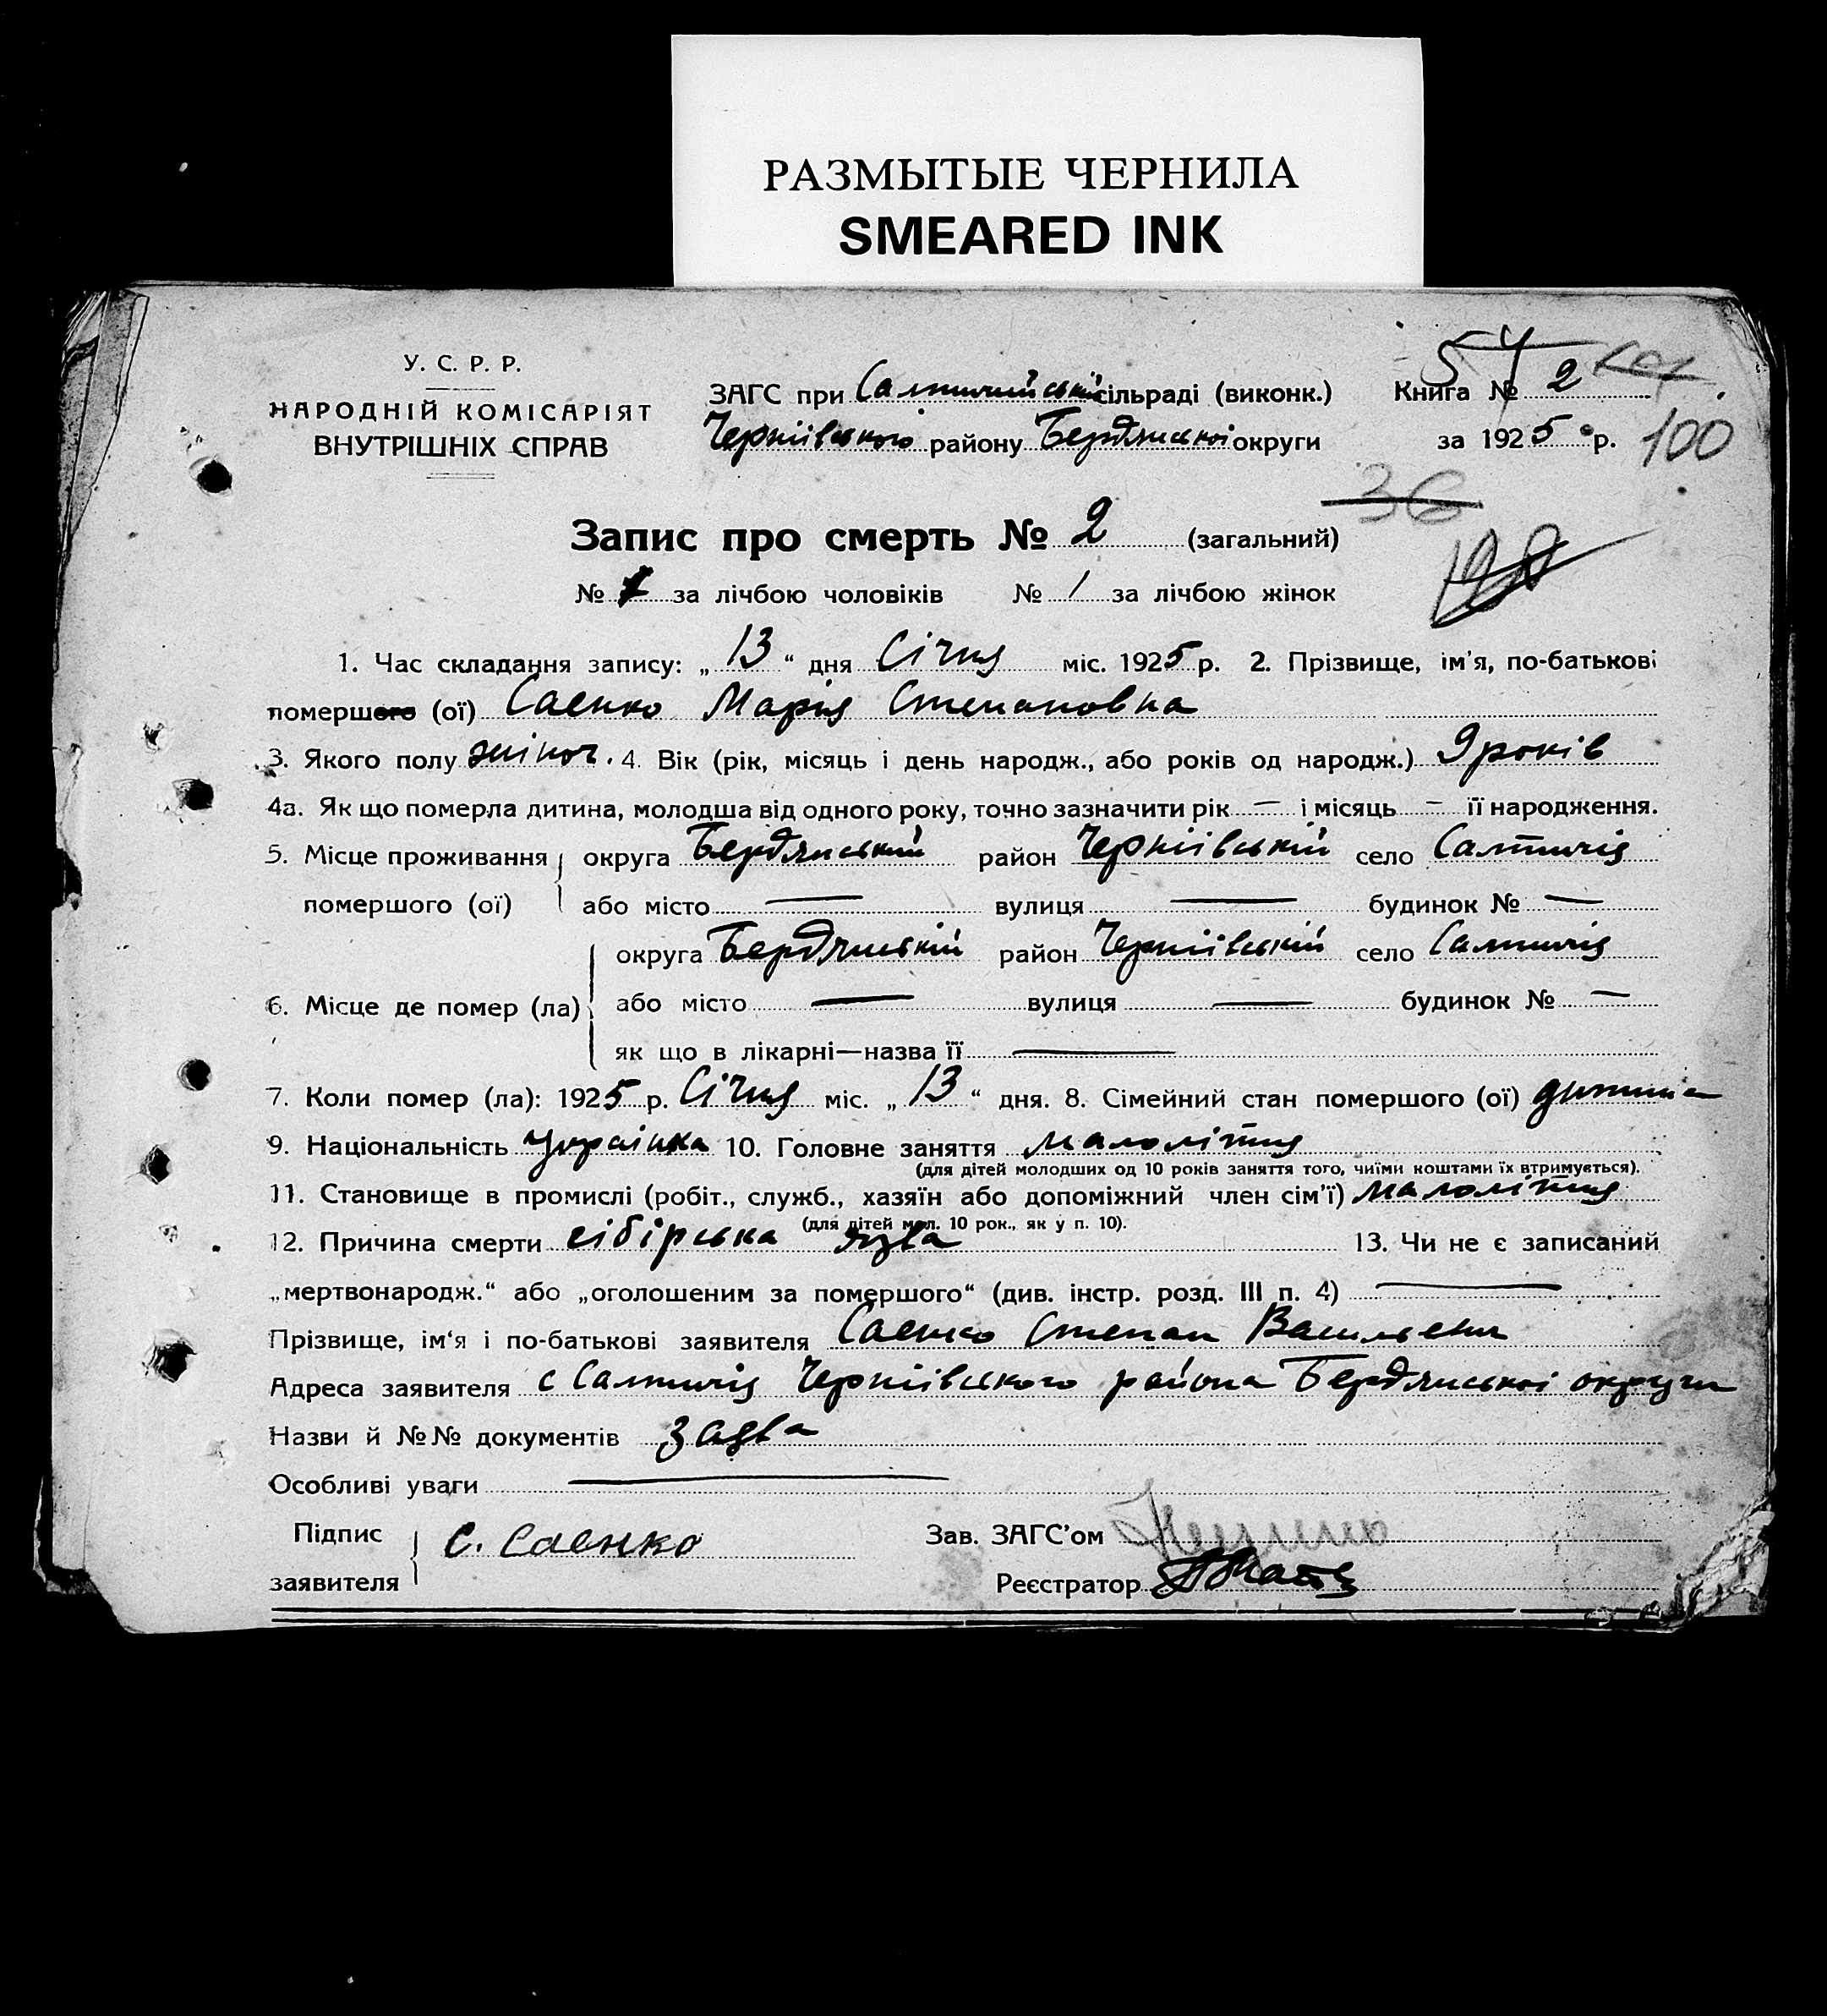 РАЗМЫТЫЕ ЧЕРНИЛА
SMEARED INK
У. С. Р. Р.
НАРОДНІЙ КОМІСАРІЯТ
ВНУТРІШНІХ СПРАВ
ЗАГС при Салтичийській сільраді (виконк.)
Черніївського району Бердянської округи
54
Книга № 2
за 1925 р.
100
36
Запис про смерть № 2 (загальний)
№ за лічбою чоловіків № 1 за лічбою жінок
1. Час складання запису: „13“ дня Січня міс. 1925 р. 2. Прізвище, ім'я, по-батькові
помершого (ої) Саенко Марія Степановна
3. Якого полу жіноч. 4. Вік (рік, місяць і день народж., або років од народж.) 9 років
4а. Як що померла дитина, молодша від одного року, точно зазначити рік — і місяць — її народження.
5. Місце проживання округа Бердянський район Черніівській село Салтичія
помершого (ої) або місто — вулиця — будинок № —
округа Бердянській район Черніівській село Салтичія
6. Місце де помер (ла) або місто — вулиця — будинок № —
як що в лікарні—назва її —
7. Коли помер (ла): 1925 р. Січня міс. „13“ дня. 8. Сімейний стан помершого (ої) дитина
9. Національність Украінка 10. Головне заняття малолітня
(для дітей молодших од 10 років заняття того, чиїми коштами їх втримується).
11. Становище в промислі (робіт., служб., хазяїн або допоміжний член сім'ї) малолітня
(для дітей мол. 10 рок., як у п. 10).
12. Причина смерти сібірська язва 13. Чи не є записаний
„мертвонародж.“ або „оголошеним за помершого“ (див. інстр. розд. III п. 4) —
Прізвище, ім'я і по-батькові заявителя Саенко Степан Васильевич
Адреса заявителя с Салтичія Черніівського района Бердянськоі округи
Назви й №№ документів заява
Особливі уваги —
Підпис
заявителя С. Саенко
Зав. ЗАГС'ом
Реєстратор